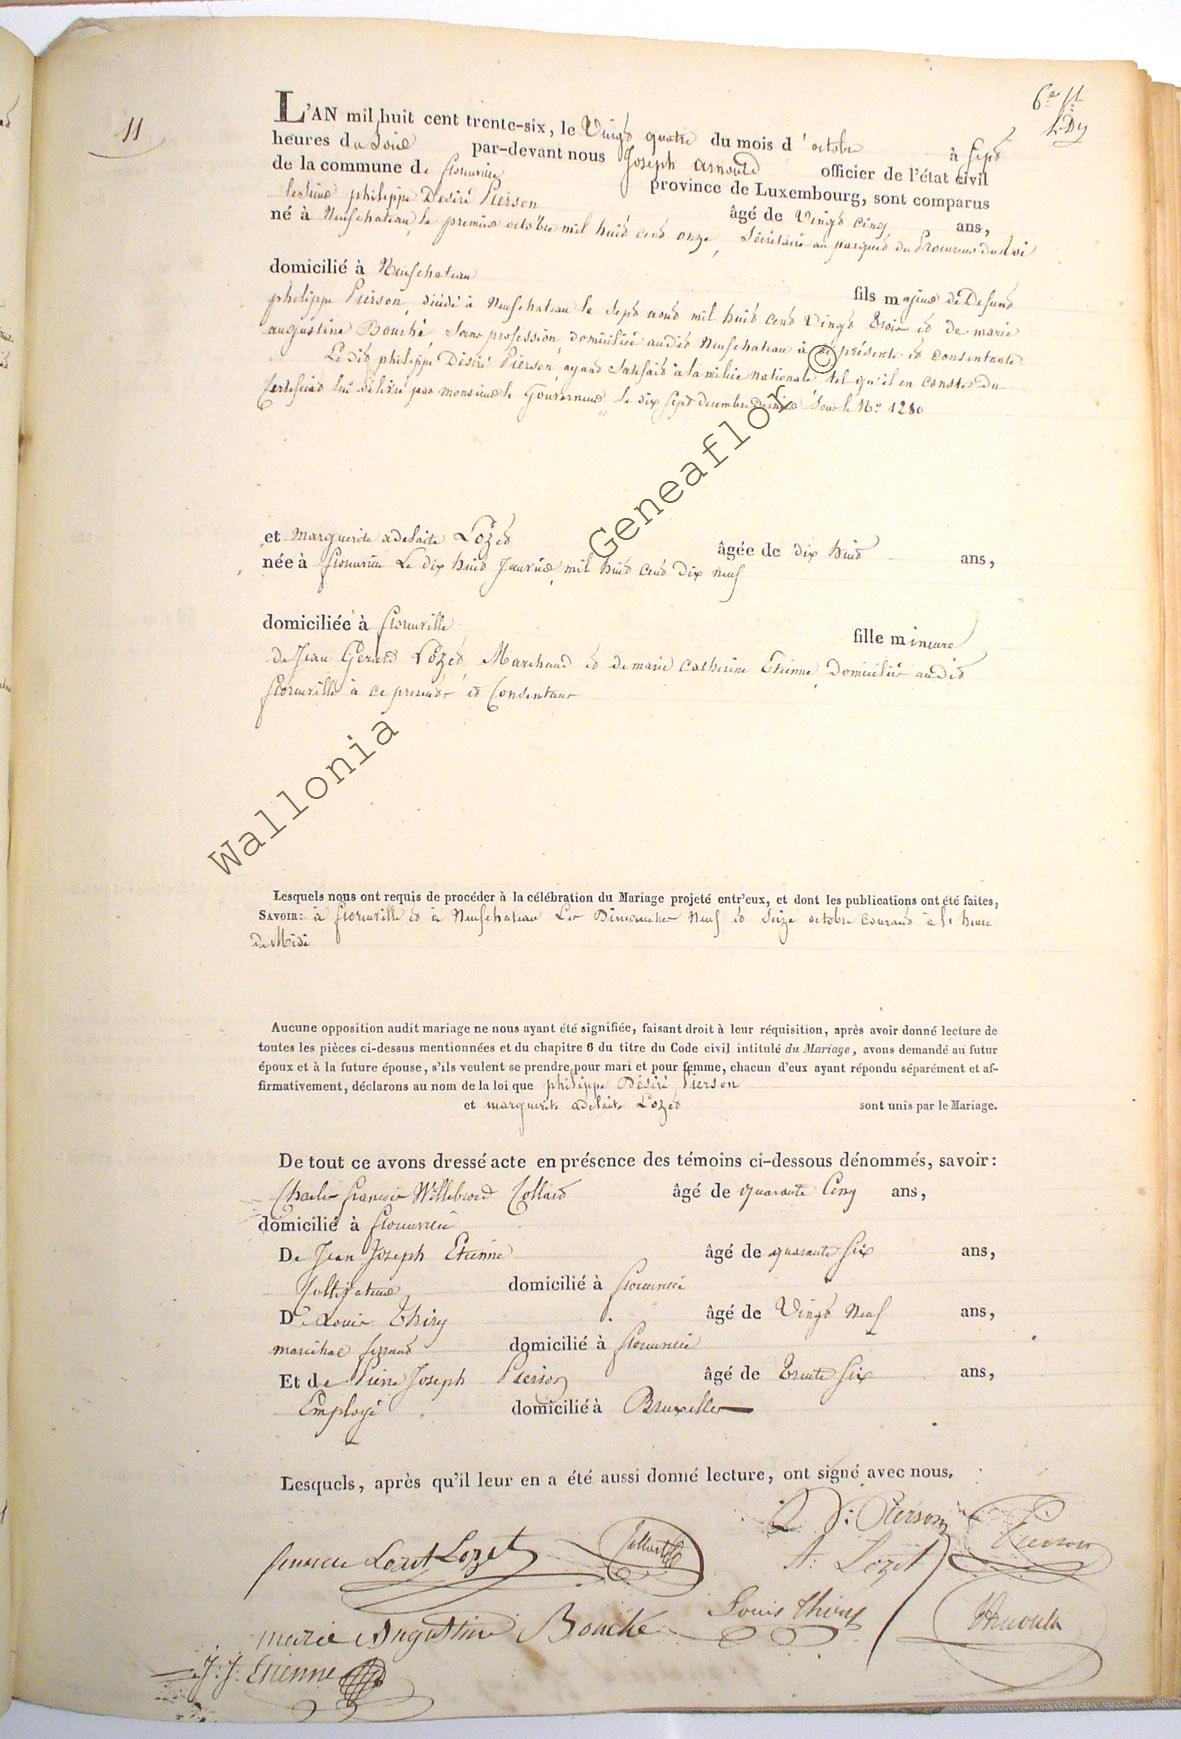 11
L'AN mil huit cent trente-six, le Vingt quatre du mois d'octobre à Sept
heures du Soir par-devant nous Joseph Arnould officier de l'état civil
de la commune de florenville province de Luxembourg, sont comparus
philippe Désiré Pierson âgé de Vingt cinq ans,
né à Neufchateau, le premier octobre mil huit cent onze, Sécrétaire au parquet du Procureur du Roi
domicilié à Neufchateau fils majeur de Defunt
philippe Pierson, décédé à Neufchateau le Sept aout mil huit cent Vingt trois et de marie
augustine Bouché, Sans profession, domiciliée audit Neufchateau à ce présente et consentante
Ledit philippe Désiré Pierson ayant satisfait à la milice nationale, tel qu'il en conste du
Certificat lui délivré par monsieur le Gouverneur le dix Sept decembre dernier Sous le No. 1280
et marguerite adelaite Lozet âgée de dix huit ans,
née à florenville Le dix huit Janvier mil huit cent dix neuf
domiciliée à florenville fille mineure
de Jean Gerard Lozet, Marchand et de marie Catherine Etienne, Domiciliés audit
florenville à ce présents et Consentans
Lesquels nous ont requis de procéder à la célébration du Mariage projeté entr'eux, et dont les publications ont été faites,
SAVOIR: à florenville et à Neufchateau Les Dimanches Neuf et Seize octobre courant à l'heure
de Midi
Aucune opposition audit mariage ne nous ayant été signifiée, faisant droit à leur réquisition, après avoir donné lecture de
toutes les pièces ci-dessus mentionnées et du chapitre 6 du titre du Code civil intitulé du Mariage, avons demandé au futur
époux et à la future épouse, s'ils veulent se prendre pour mari et pour femme, chacun d'eux ayant répondu séparément et af-
firmativement, déclarons au nom de la loi que philippe Désiré Pierson
et marguerite adelaite Lozet sont unis par le Mariage.
De tout ce avons dressé acte en présence des témoins ci-dessous dénommés, savoir:
Charles françois Willebrord Collard âgé de quarante Cinq ans,
domicilié à florenville
De Jean Joseph Etienne âgé de quarante Six ans,
Cultivateur domicilié à florenville
De Louis Thiry âgé de Vingt Neuf ans,
marechal ferrant domicilié à florenville
Et de Pierre Joseph Pierson âgé de trente Six ans,
Employé domicilié à Bruxelles
Lesquels, après qu'il leur en a été aussi donné lecture, ont signé avec nous.
D: Pierson
Pierson
Lozet Lozet
Collard
A: Lozet
Louis Thiry
Arnould
marie Augustine Bouché
J: J: Etienne
Wallonia Geneaflor ©